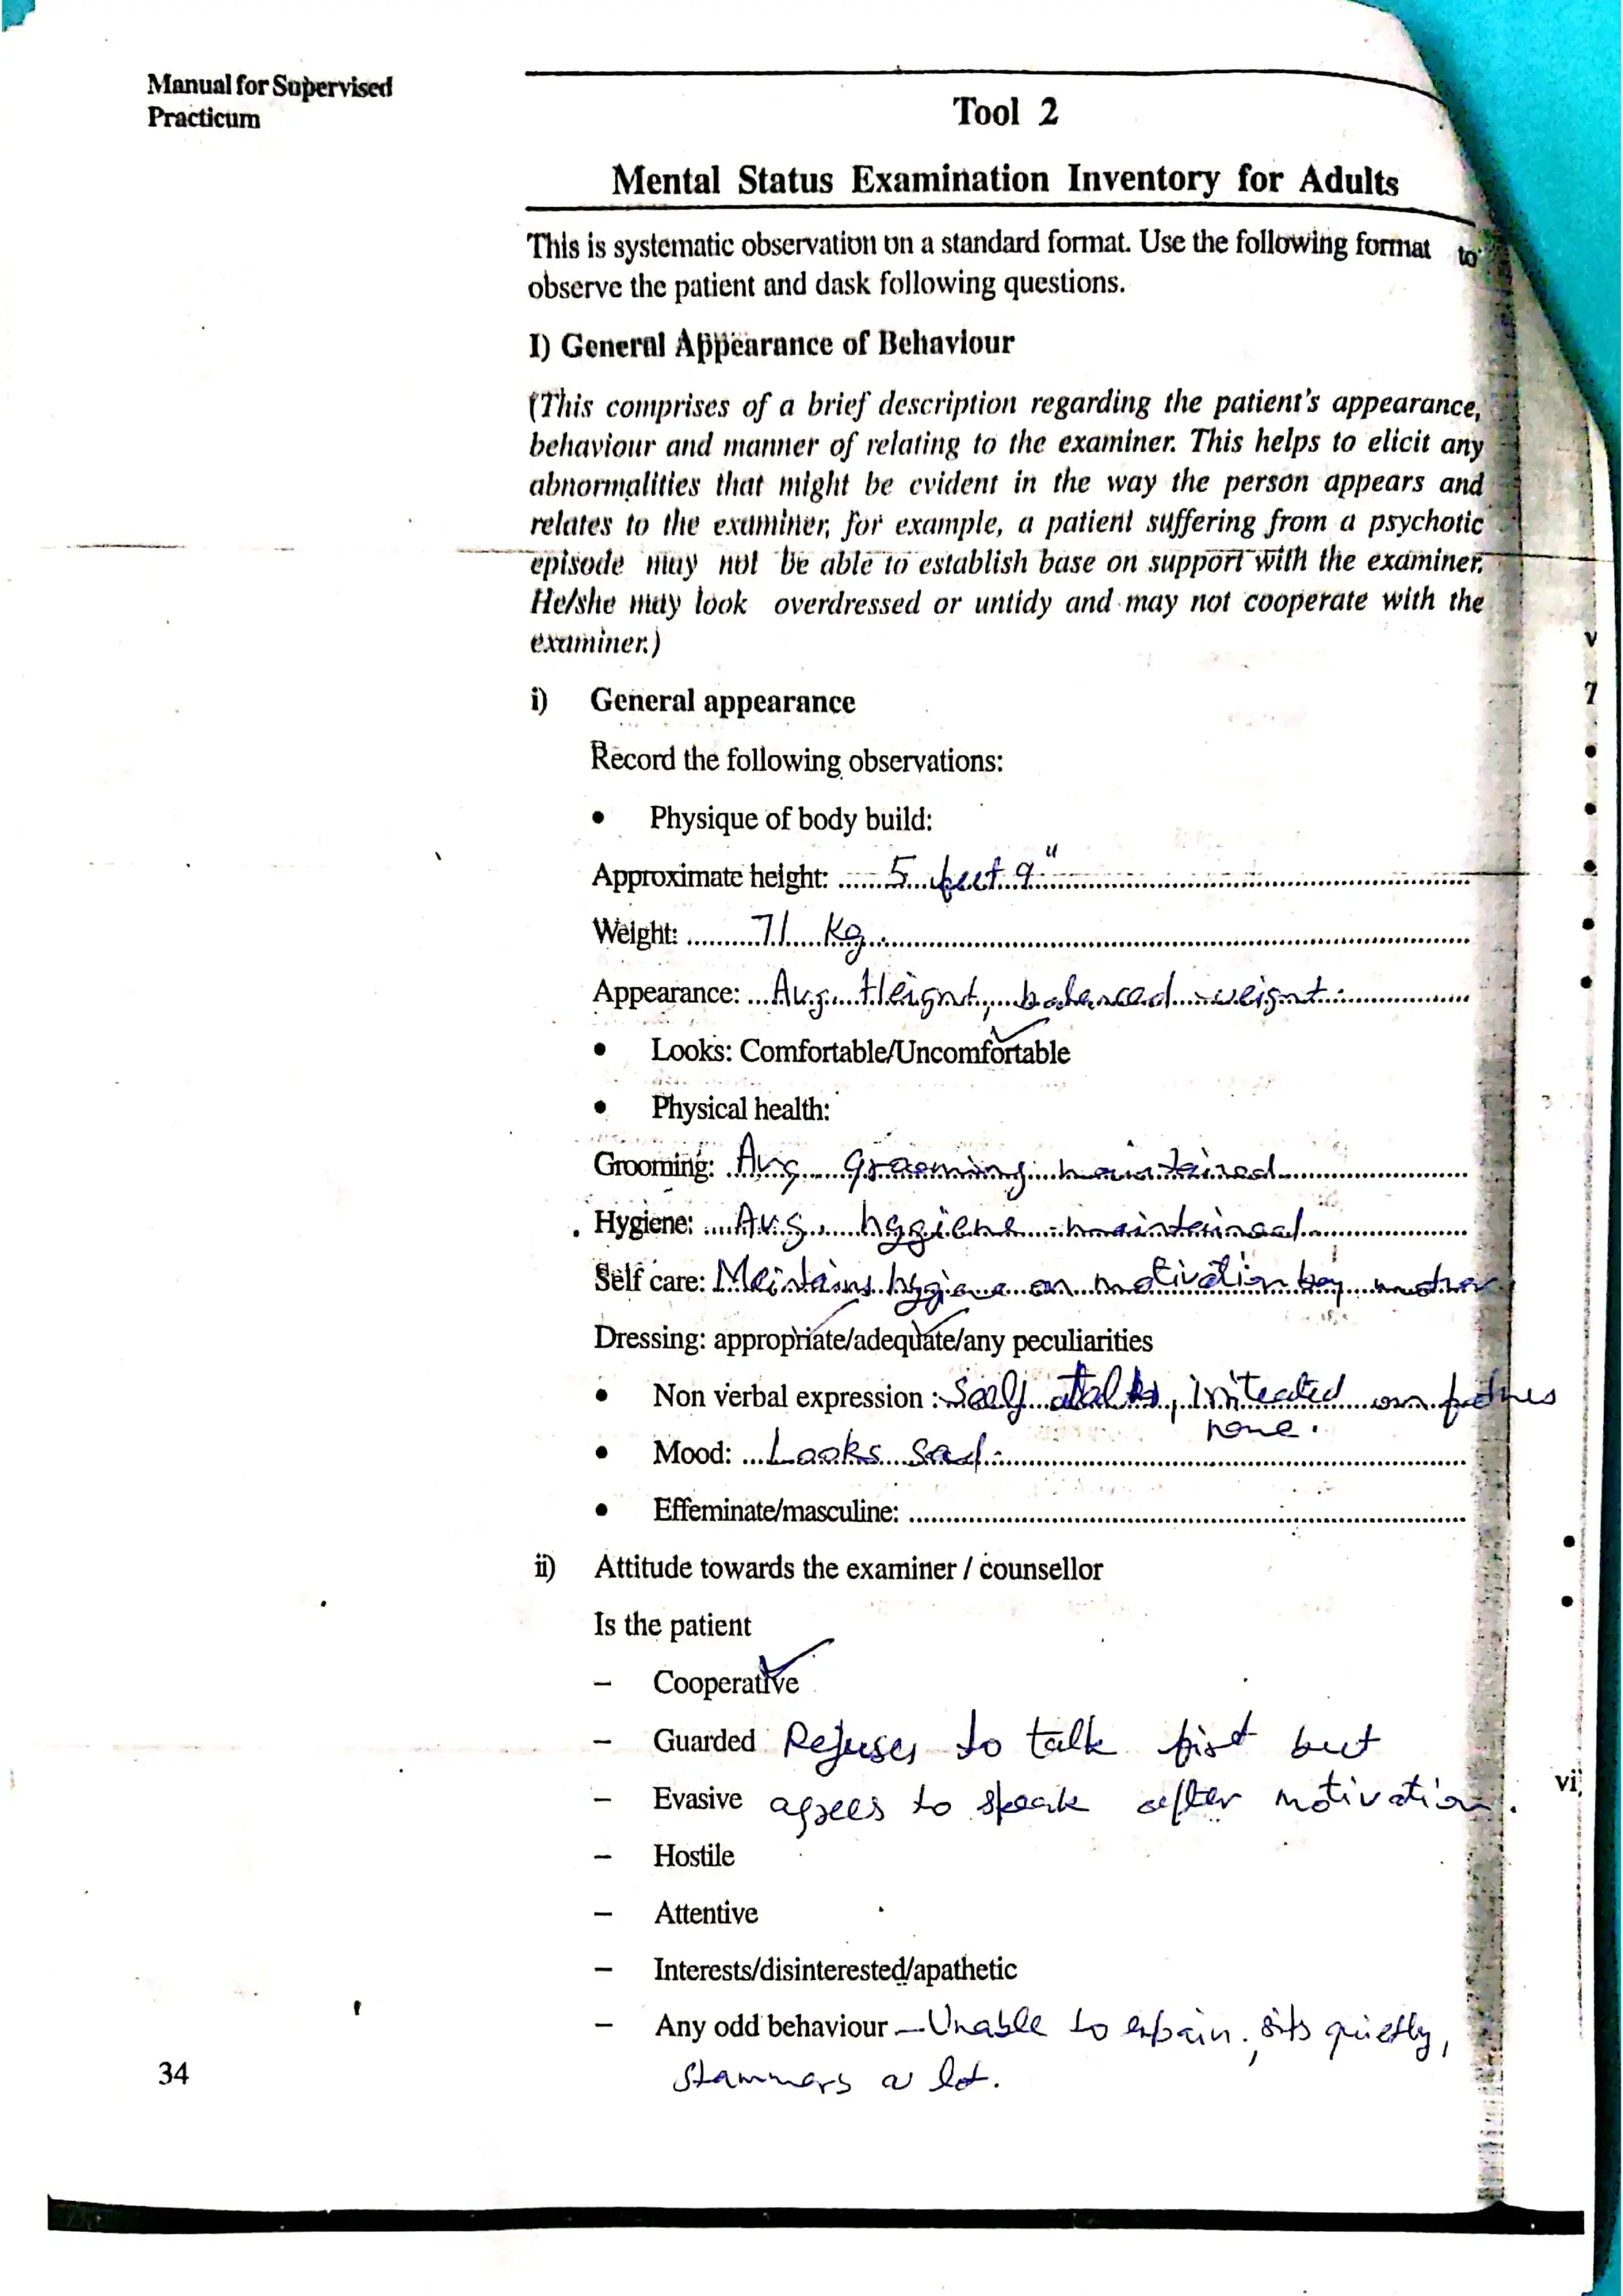 Manual for Supervised
Practicum
Tool 2
Mental Status Examination Inventory for Adults
This is systematic observation on a standard format. Use the following format to
observe the patient and dask following questions.
I) General Appearance of Behaviour
(This comprises of a brief description regarding the patient's appearance,
behaviour and manner of relating to the examiner. This helps to elicit any
abnormalities that might be evident in the way the person appears and
relates to the examiner, for example, a patient suffering from a psychotic
episode may not be able to establish base on support with the examiner.
He/she may look overdressed or untidy and may not cooperate with the
examiner.)
i) General appearance
Record the following observations:
• Physique of body build:
Approximate height: 5 feet 9"
Weight: 71 Kg.
Appearance: Avg. Height, balanced weight.
• Looks: Comfortable/Uncomfortable
• Physical health:
Grooming: Avg grooming maintained
Hygiene: Avg. hygiene maintained.
Self care: Maintains hygiene on motivation by mother
Dressing: appropriate/adequate/any peculiarities
• Non verbal expression : Self talks, irritated on fathers
name.
• Mood: Looks sad.
• Effeminate/masculine:
ii) Attitude towards the examiner / counsellor
Is the patient
– Cooperative
– Guarded Refuses to talk first but
– Evasive agrees to speak after motivation.
– Hostile
– Attentive
– Interests/disinterested/apathetic
– Any odd behaviour – Unable to expain, sits quietly,
stammers a lot.
34
v
vi